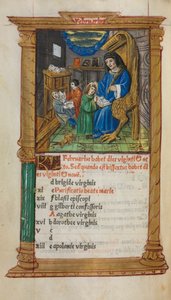 Februarius habet dies viginti Oc
to. Sed quando est bissextus habet di
es viginti & nouē.
d brigide virginis
xi e Purificatio beate marie
f blasii episcopi
viii g gilberti confessoris
A agathe virginis
xvi b dorothee virginis
v c
d
xiii e apolonie virginis